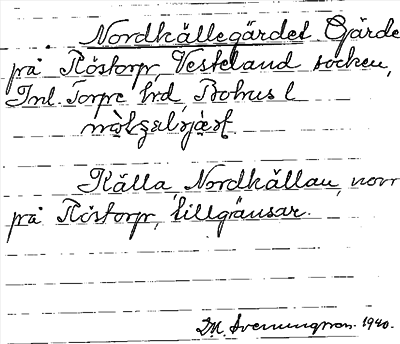 Nordkällegärdet Gärde
på Röstorp, Vesteland socken,
Inl. Torpe hrd, Bohus l

Källa, Nordkällan, norr
på Röstorp, tillgränsar.
1940.